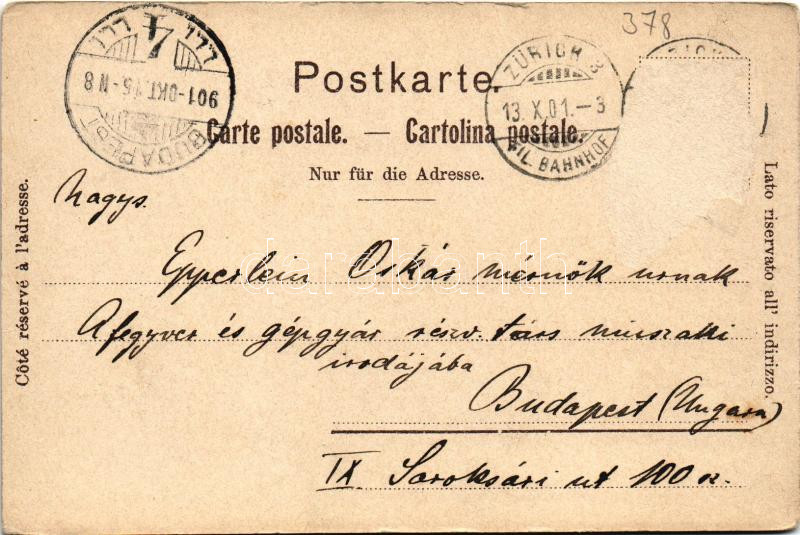 378
777
4
901-OKT.15-N8
BUDAPEST
ZÜRICH 3
13. X.01.-3
FIL. BAHNHOF
Postkarte.
Carte postale. — Cartolina postale.
Nur für die Adresse.
Côté réservé à l'adresse.
Lato riservato all' indirizzo.
Nagys.
Epperlein Oskár mérnök urnak
A fegyver és gépgyár részv. társ műszaki
irodájába
Budapest (Ungarn)
IX Soroksári ut 100 sz.
darabanth